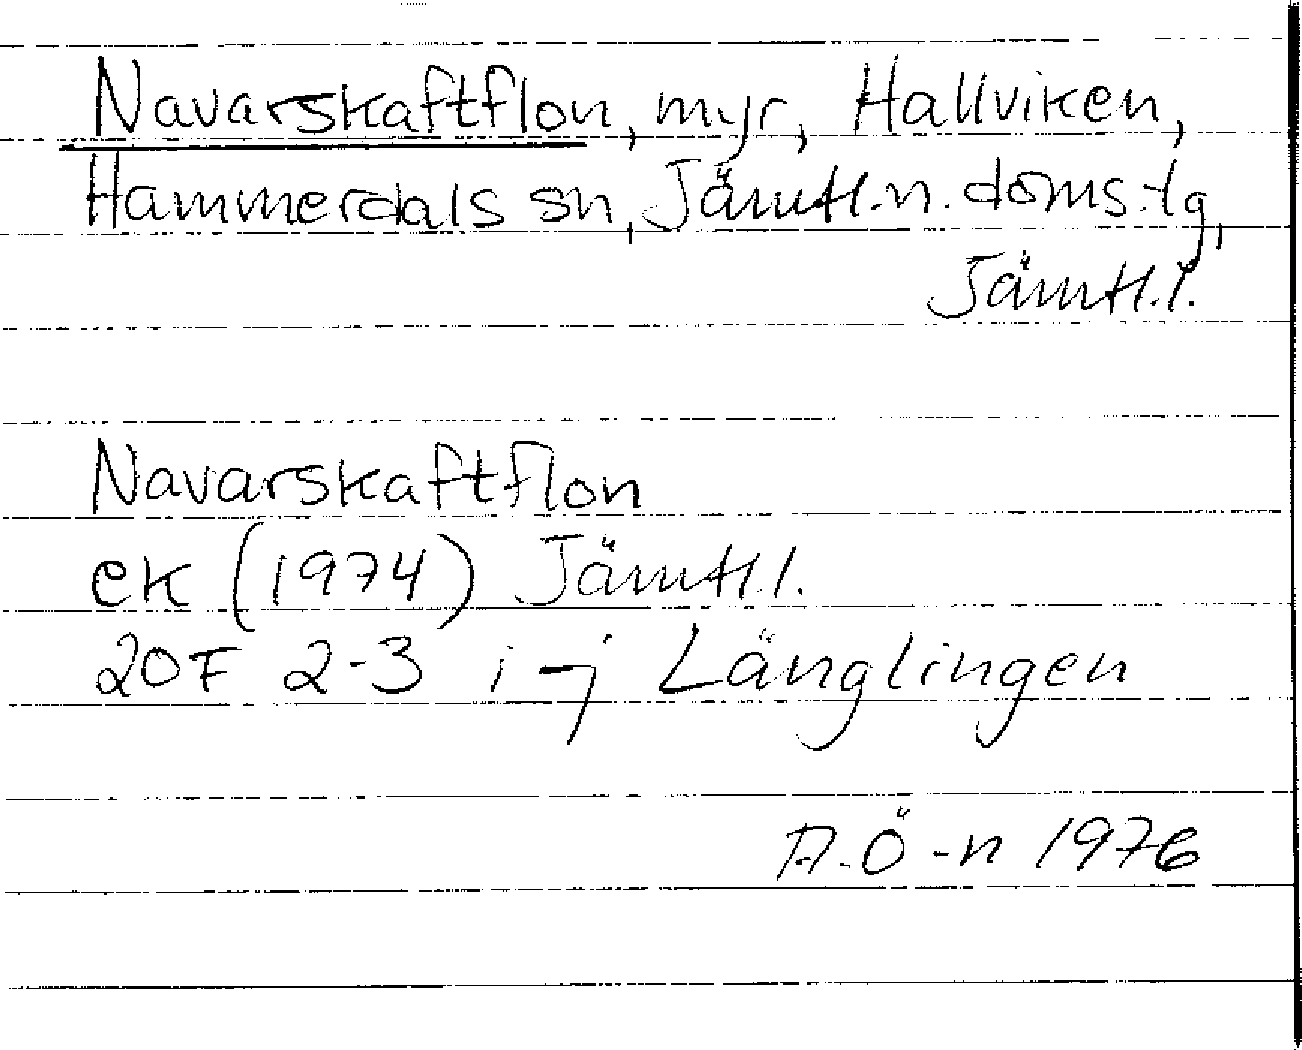 Navarskaftflon, myr, Hallviken,
Hammerdals sn, Jämtl.n.doms.lg,
Jämtl.l.
Navarskaftflon
ek (1974) Jämtl.l.
20F 2-3 i-j Länglingen
A.Ö-n 1976